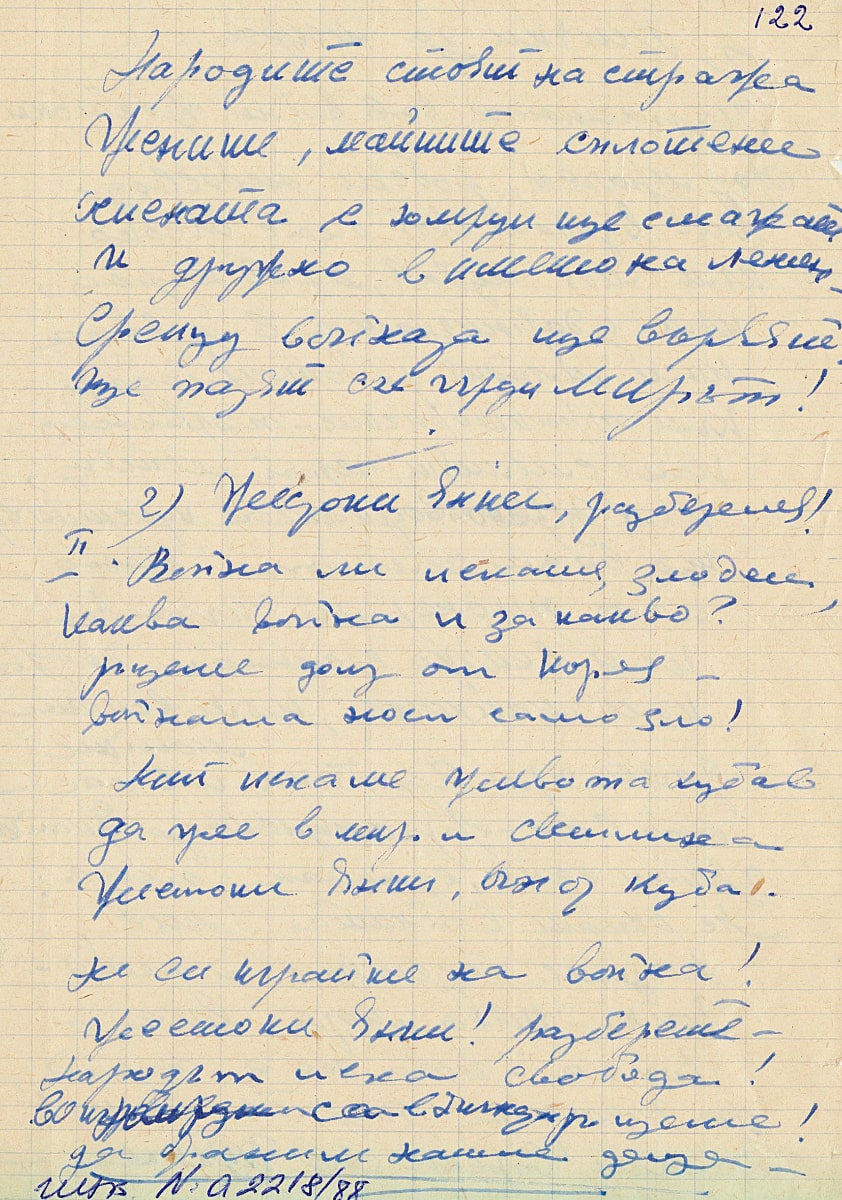 122
Народите стоят на стража
Жените, майките сплотени
с юмруци ще смажат
и дружно в името на Ленин –
Срещу война ще вървят,
ще пазят с гърди Мирът!
2) Жестоки Янки, разберете!
II. Война ли искаше, злодеи,
каква война и за какво?
ръцете долу от Корея –
войната носи само зло!
Ний искаме живота хубав
да уче в мир и светлина
Жестоки Янки, вън от Куба.
не си играйте на война!
Жестоки Янки! разберете –
народът иска свобода!
ръцете!
да браним нашите деца –
инв. № а 2218/88